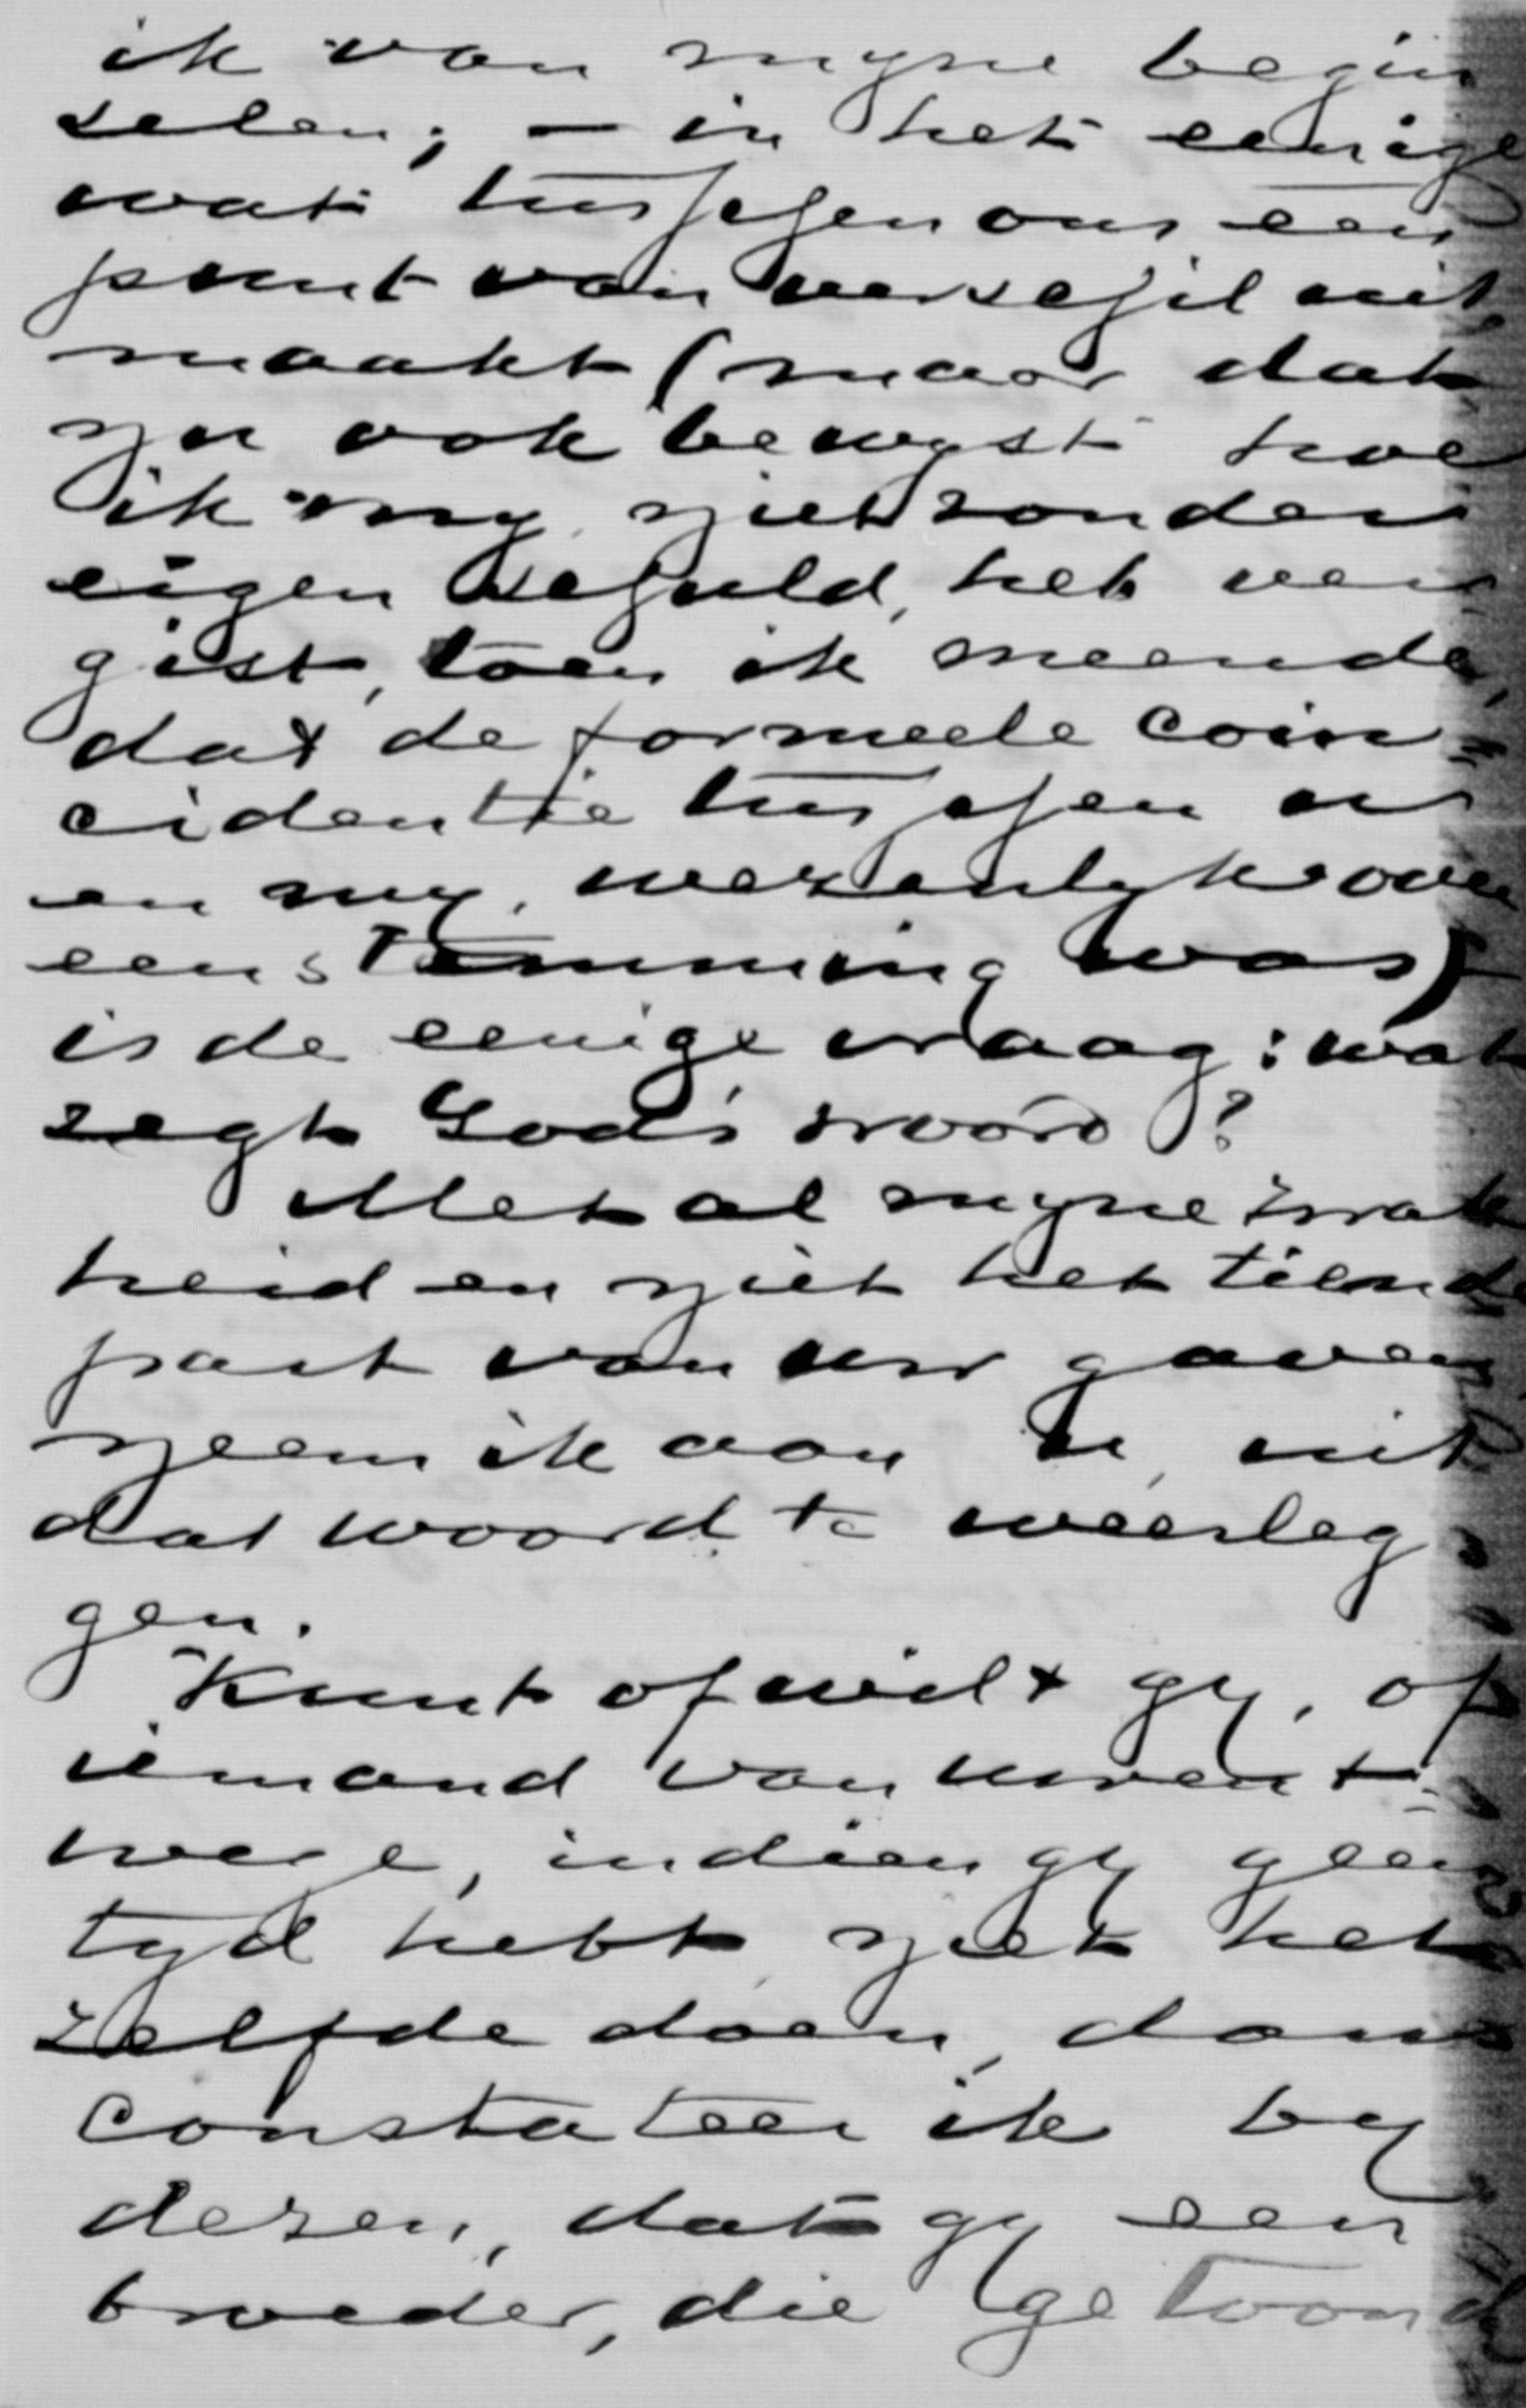 ik van myne begin
selen; – in het eenige
wat tusschen ons een
punt van verschil uit
maakt (maar dat
nu ook bewyst hoe
ik my, niet zonder
eigen schuld, heb ver
gist, toen ik meende,
dat de formeele coin=
cidentie tusschen u
en my, wezenlyke over
eenstemming was)
is de eenige vraag: wat
zegt Gods woord?
Met al myne zwak
heid en niet het tiende
part van uw gaven
neem ik aan u, uit
dat woord te weerleg
gen.
Kunt of wilt gy, of
iemand van uwent=
wege, indien gy geen
tyd hebt, niet het
zelfde doen, dan
constateer ik by
dezen, dat gy een
broeder, die getoond